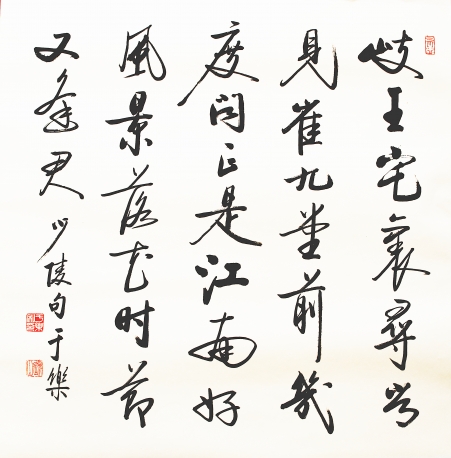 岐王宅裏尋常
見崔九堂前幾
度聞正是江南好
風景落花时節
又逢君 少陵句于樂